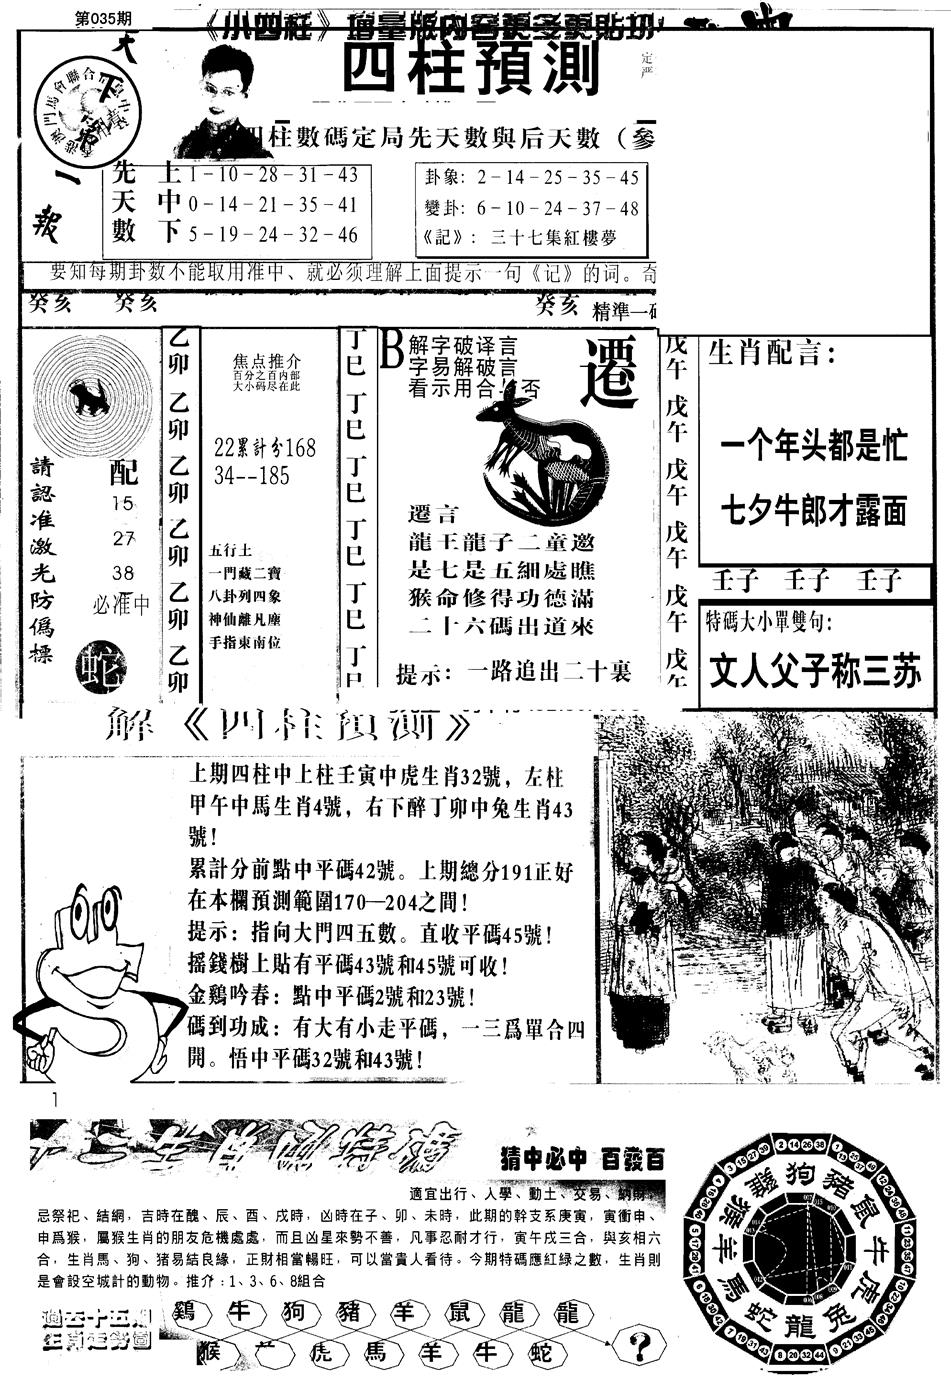 第035期
《小四柱》增量版内容更多更貼切
四柱預測
大
下
第
一
報
四柱數碼定局先天數與后天數（參
先天數
上 1-10-28-31-43
中 0-14-21-35-41
下 5-19-24-32-46
卦象：2-14-25-35-45
變卦：6-10-24-37-48
《記》：三十七集紅樓夢
要知每期卦数不能取用准中、就必须理解上面提示一句《记》的词。奇
癸亥 癸亥 癸亥 精準一
請認准激光防僞標
配
15
27
38
必准中
蛇
乙卯 乙卯 乙卯 乙卯 乙卯 乙卯
焦点推介
百分之百内部
大小码尽在此
22累計分168
34--185
五行土
一門藏二寶
八卦列四象
神仙離凡塵
手指東南位
丁巳 丁巳 丁巳 丁巳 丁巳 丁巳
B 解字破译言
字易解破言
看示用合与否
遷
遷言
龍王龍子二童邀
是七是五細處瞧
猴命修得功德滿
二十六碼出道來
提示：一路追出二十裏
戊午 戊午 戊午 戊午 戊午 戊午
生肖配言：
一个年头都是忙
七夕牛郎才露面
壬子 壬子 壬子
特碼大小單雙句：
文人父子称三苏
解《四柱預測》
上期四柱中上柱壬寅中虎生肖32號，左柱
甲午中馬生肖4號，右下醉丁卯中兔生肖43
號！
累計分前點中平碼42號。上期總分191正好
在本欄預測範圍170—204之間！
提示：指向大門四五數。直收平碼45號！
摇錢樹上貼有平碼43號和45號可收！
金鷄吟春：點中平碼2號和23號！
碼到功成：有大有小走平碼，一三爲單合四
開。悟中平碼32號和43號！
1
猜中必中 百發百
適宜出行、入學、動土、交易、納財，
忌祭祀、結網，吉時在醜、辰、酉、戌時，凶時在子、卯、未時，此期的幹支系庚寅，寅衝申、
申爲猴，屬猴生肖的朋友危機處處，而且凶星來勢不善，凡事忍耐才行，寅午戌三合，與亥相六
合，生肖馬、狗、猪易結良緣，正財相當暢旺，可以當貴人看待。今期特碼應紅緑之數，生肖則
是會設空城計的動物。推介：1、3、6、8組合
過去十五期
生肖走势圖
鷄 牛 狗 豬 羊 鼠 龍 龍
猴 虎 馬 羊 牛 蛇 ?
狗 豬 鼠 牛 虎 兔 龍 蛇 馬 羊 猴 雞